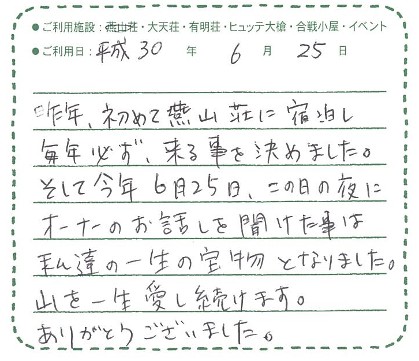 ●ご利用施設：燕山荘・大天荘・有明荘・ヒュッテ大槍・合戦小屋・イベント
●ご利用日：平成30年 6月 25日
昨年、初めて燕山荘に宿泊し
毎年必ず、来る事を決めました。
そして今年6月25日、この日の夜に
オーナーのお話しを聞けた事は
私達の一生の宝物となりました。
山を一生愛し続けます。
ありがとうございました。